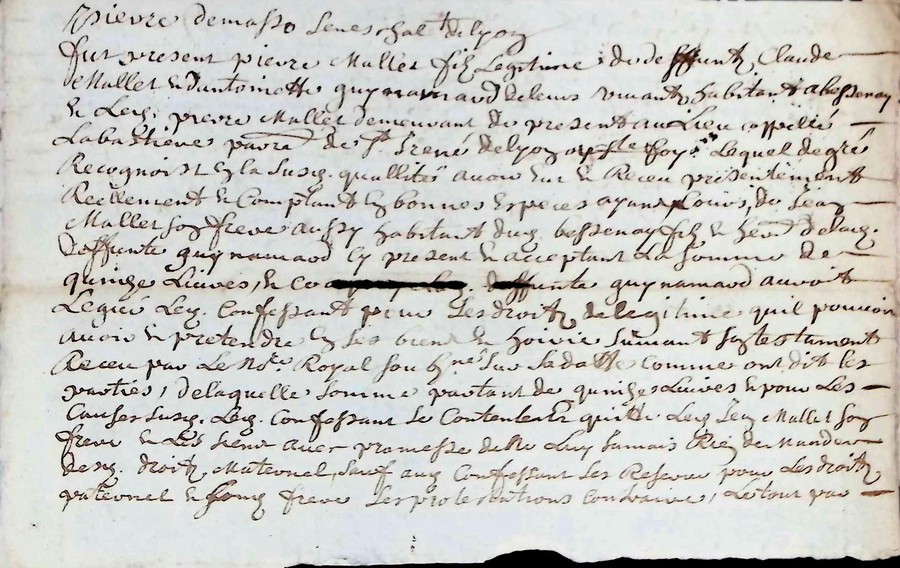 pierre demasso seneschal de lyon
fut present pierre Mallet filz Legitime de deffuntz Claude
Mallet & dantoinette guynamard de leurs vivantz habitantz a bessenay
& Led. pierre Mallet demeurant de present au Lieu appellé
Labastiere parr. de St Irené de lyon Lequel de gré
Recognoist la susd. quallités avoir eu & Receu presentement
Reellement & Comptant en bonnes especes ayant cours, de Jean
Mallet son frere aussy habitant dud. bessenay filz & herit. de lad.
deffunte guynamard cy present & acceptant La somme de
quinze Livres, & deffunte guynamard auroit
Legué Led. Confessant pour ses droitz de legitime quil pouvoir
avoir & pretendre en ses biens & hoirie suivant son testament
Receu par Le No.re Royal soubsne sur sa datte comme ont dit les
parties, de laquelle somme partant de quinze Livres & pour Les
Causes susd. Led. Confessant se Contente & quitte Led. Jean Mallet son
frere & Les siens avec promesse de ne Luy Jamais Rien demander
desd. droitz Maternel, sauf aud. Confessant ses Reserves pour Les droitz
paternel & frere ses protestations Contraires, Le tout par